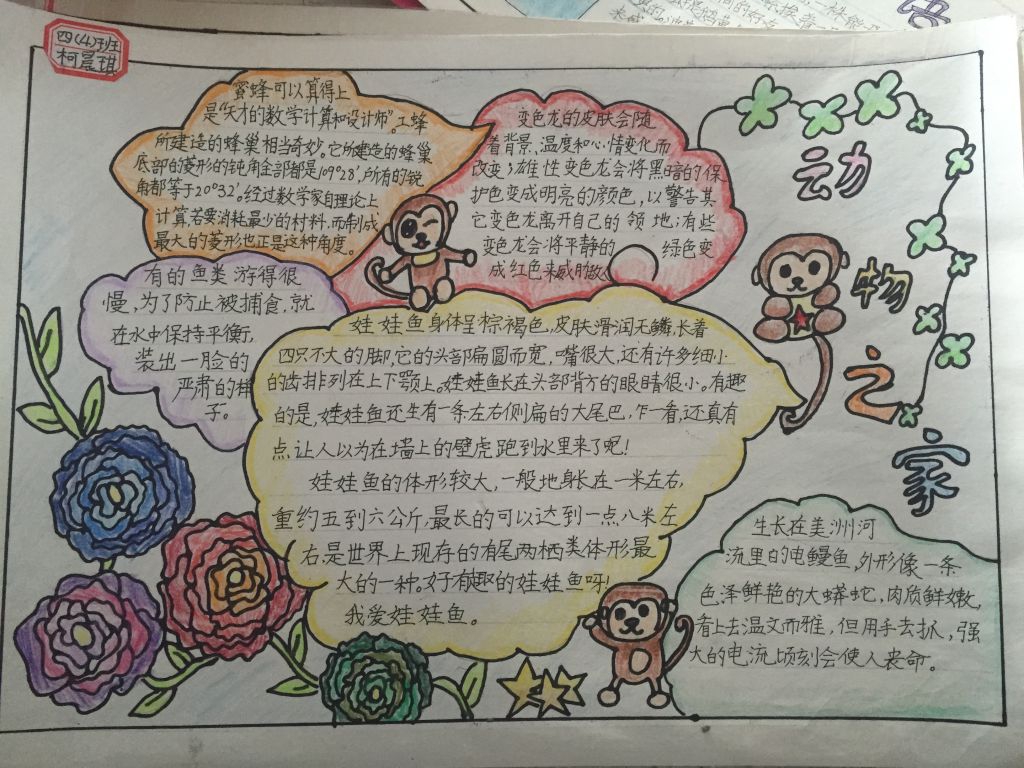 四(4)班
柯晨琪
动物之家
蜜蜂可以算得上
是“天才的数学计算和设计师”。工蜂
所建造的蜂巢相当奇妙。它所建造的蜂巢
底部的菱形的钝角全部都是109°28′,所有的锐
角都等于70°32′。经过数学家自理论上
计算,若要消耗最少的材料,而制成
最大的菱形也正是这种角度。
变色龙的皮肤会随
着背景、温度和心情变化而
改变;雄性变色龙会将黑暗的保
护色变成明亮的颜色,以警告其
它变色龙离开自己的领地;有些
变色龙会将平静的绿色变
成红色来威吓敌
有的鱼类游得很
慢,为了防止被捕食,就
在水中保持平衡,
装出一脸的
严肃的样
子。
娃娃鱼身体呈棕褐色,皮肤滑润无鳞,长着
四只不大的脚,它的头部扁圆而宽,嘴很大,还有许多细小
的齿排列在上下颚上。娃娃鱼长在头部背方的眼睛很小。有趣
的是,娃娃鱼还生有一条左右侧扁的大尾巴,乍一看,还真有
点让人以为在墙上的壁虎跑到水里来了呢!
娃娃鱼的体形较大,一般地身长在一米左右,
重约五到六公斤,最长的可以达到一点八米左
右,是世界上现存的有尾两栖类体形最
大的一种。好有趣的娃娃鱼呀!
我爱娃娃鱼。
生长在美洲河
流里的电鳗鱼,外形像一条
色泽鲜艳的大蟒蛇,肉质鲜嫩,
看上去温文而雅,但用手去抓,强
大的电流顷刻会使人丧命。